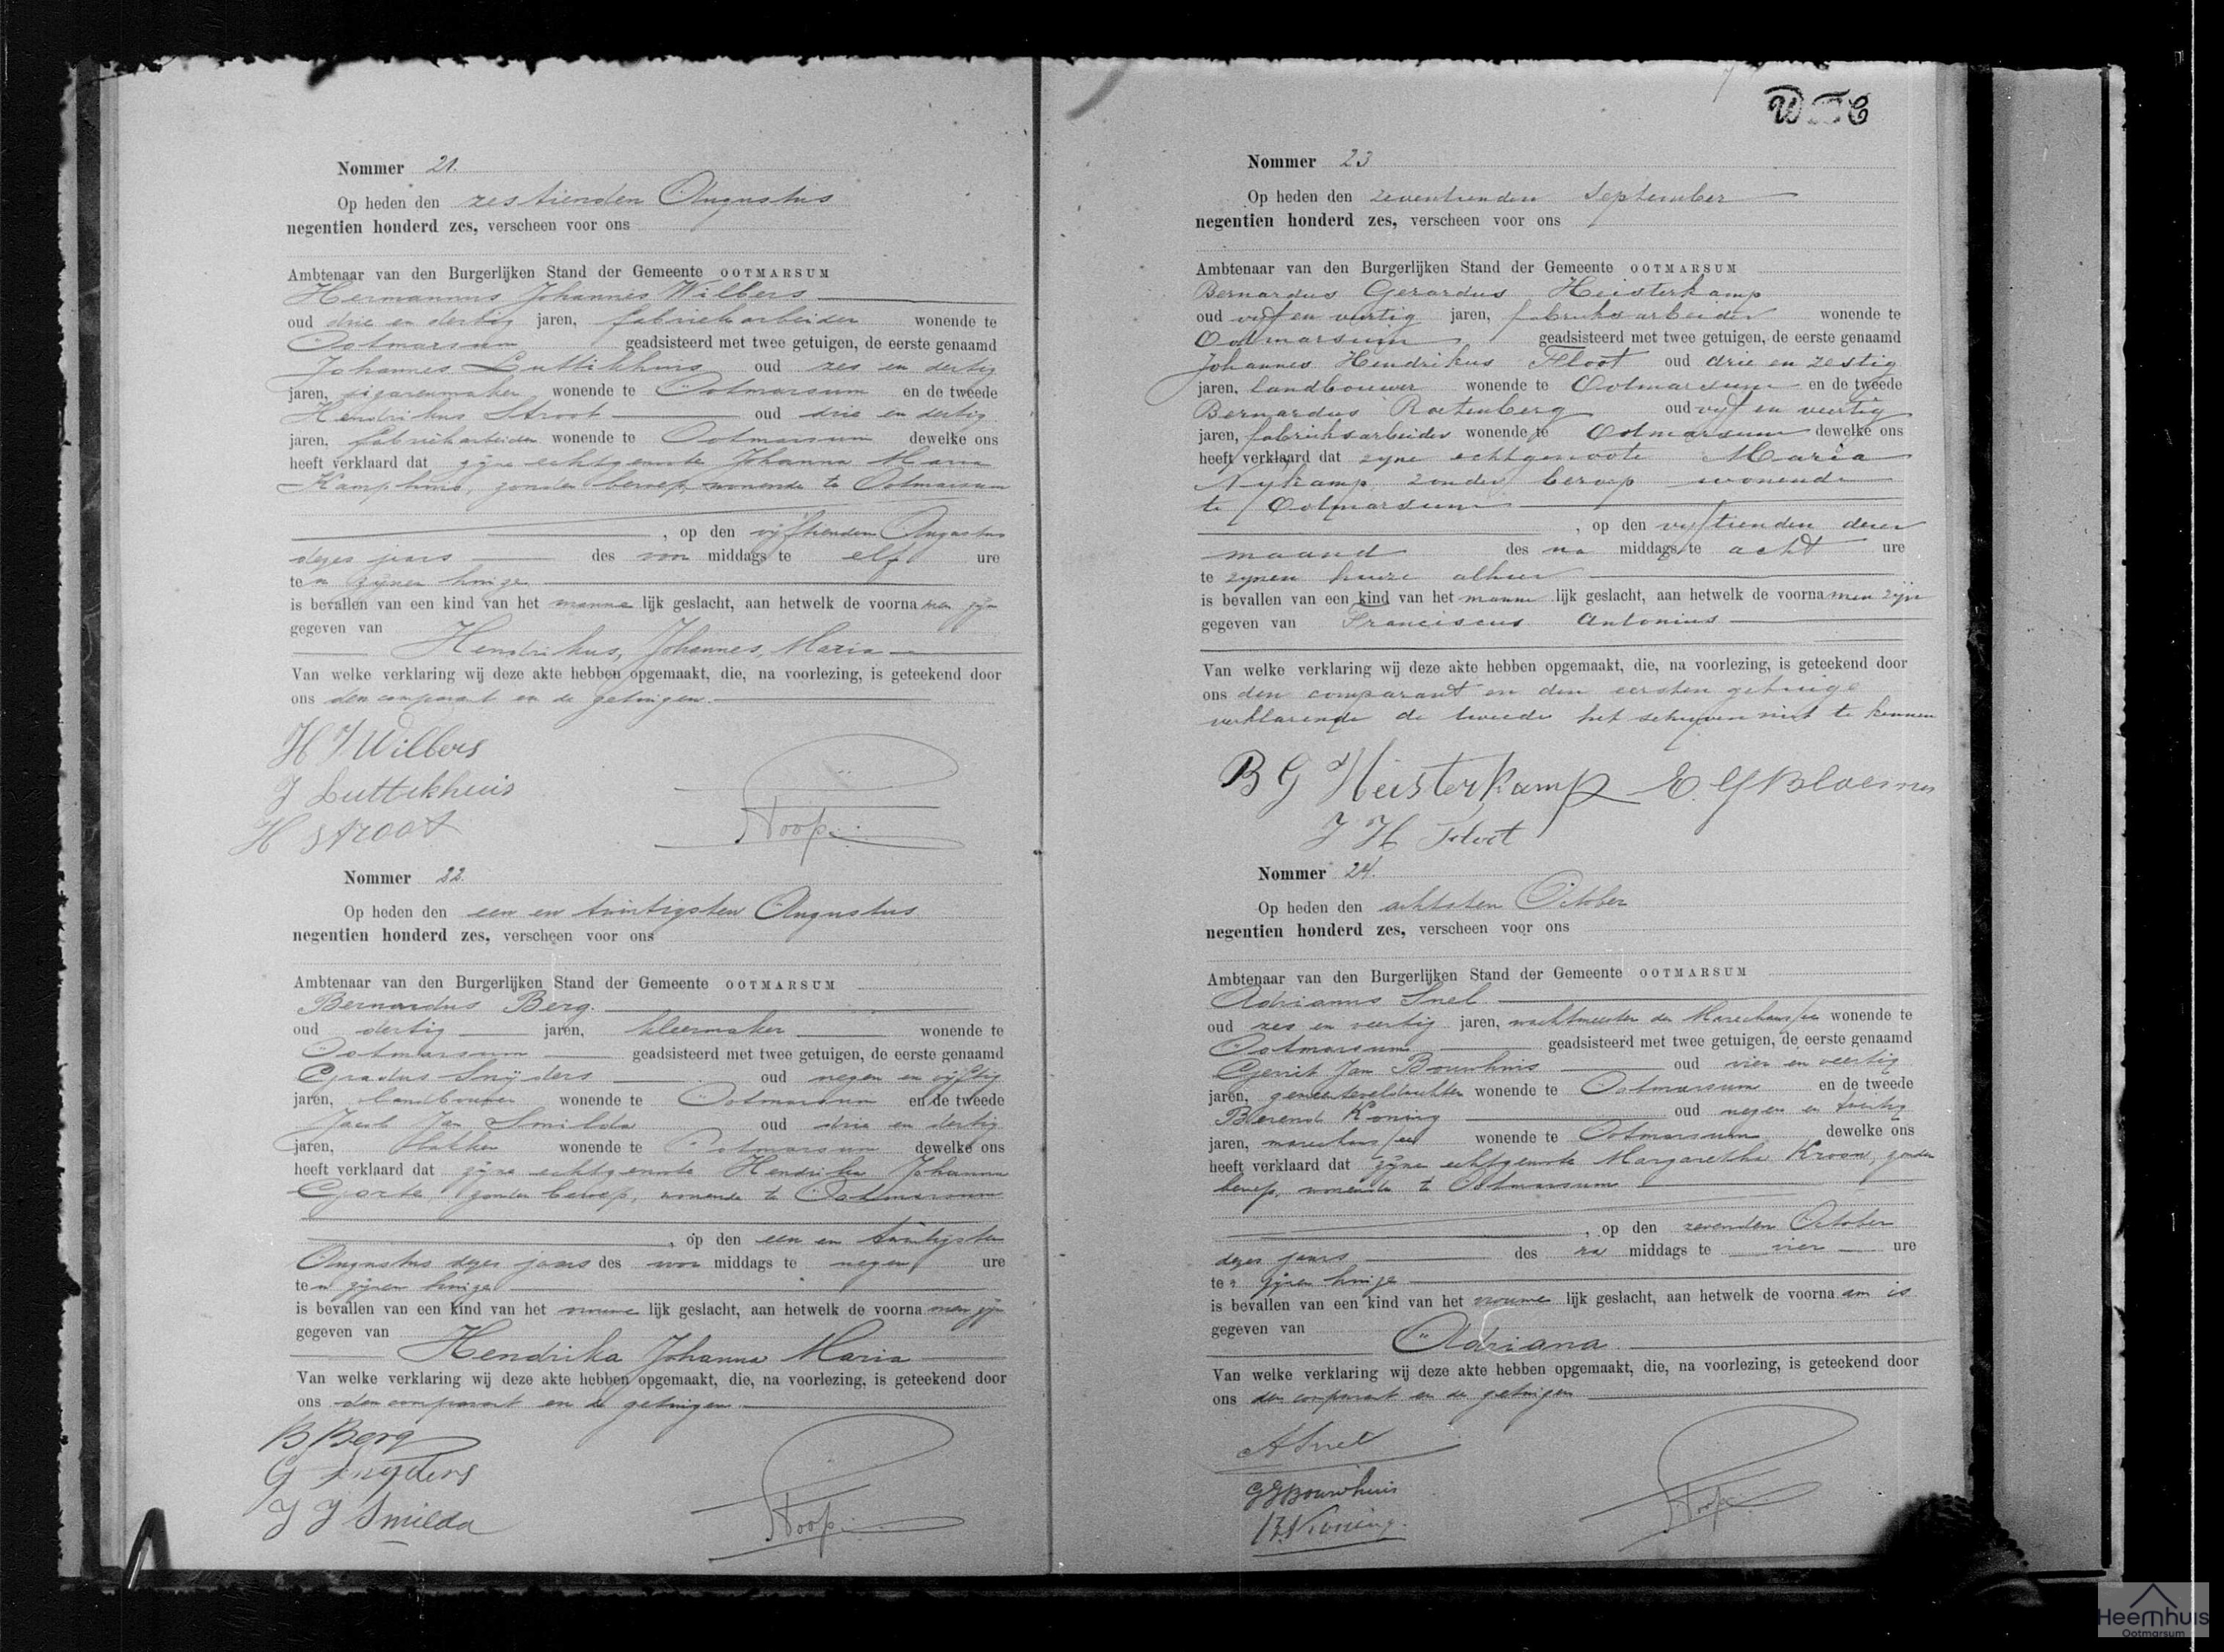 Nommer 21.
Op heden den zestienden Augustus
negentien honderd zes, verscheen voor ons
Ambtenaar van den Burgerlijken Stand der Gemeente OOTMARSUM
Hermannus Johannes Wilbers
oud drie en dertig jaren, fabriekarbeider wonende te
Ootmarsum geadsisteerd met twee getuigen, de eerste genaamd
Johannes Luttikhuis oud zes en dertig
jaren, sigarenmaker wonende te Ootmarsum en de tweede
Hendrikus Stroot oud drie en dertig
jaren, fabriekarbeider wonende te Ootmarsum dewelke ons
heeft verklaard dat zijne echtgenoote Johanna Maria
Kamphuis, zonder beroep, wonende te Ootmarsum
, op den vijftienden Augustus
dezes jaars des voor middags te elf ure
te n zijnen huize
is bevallen van een kind van het manne lijk geslacht, aan hetwelk de voorna men zijn
gegeven van
Hendrikus, Johannes, Maria
Van welke verklaring wij deze akte hebben opgemaakt, die, na voorlezing, is geteekend door
ons den comparant en de getuigen.
H J Wilbers
J Luttekhuis
H Stroot
Nommer 22.
Op heden den een en twintigsten Augustus
negentien honderd zes, verscheen voor ons
Ambtenaar van den Burgerlijken Stand der Gemeente OOTMARSUM
Bernardus Berg.
oud dertig jaren, kleermaker wonende te
Ootmarsum geadsisteerd met twee getuigen, de eerste genaamd
Gradus Snijders oud negen en vijftig
jaren, landbouwer wonende te Ootmarsum en de tweede
Jacob Jan Smilda oud drie en dertig
jaren, bakker wonende te Ootmarsum dewelke ons
heeft verklaard dat zijne echtgenoote Hendrika Johanna
zonder beroep, wonende te Ootmarsum
, op den een en twintigsten
Augustus dezes jaars des voor middags te negen ure
te n zijnen huize
is bevallen van een kind van het vrouwe lijk geslacht, aan hetwelk de voorna men zijn
gegeven van
Hendrika Johanna Maria
Van welke verklaring wij deze akte hebben opgemaakt, die, na voorlezing, is geteekend door
ons den comparant en de getuigen.
B Berg
G Snijders
J J Smilda
Nommer 23
Op heden den zeventienden September
negentien honderd zes, verscheen voor ons
Ambtenaar van den Burgerlijken Stand der Gemeente OOTMARSUM
Bernardus Gerardus Heisterkamp
oud vijf en veertig jaren, fabrieksarbeider wonende te
Ootmarsum geadsisteerd met twee getuigen, de eerste genaamd
Johannes Hendrikus Floot oud drie en zestig
jaren, landbouwer wonende te Ootmarsum en de tweede
Bernardus Rotenberg oud vijf en veertig
jaren, fabrieksarbeider wonende te Ootmarsum dewelke ons
heeft verklaard dat zijne echtgenoote Maria
Nijkamp zonder beroep wonende
te Ootmarsum
, op den vijftienden dezer
maand des na middags te acht ure
te zijnen huize alhier
is bevallen van een kind van het manne lijk geslacht, aan hetwelk de voorna men zijn
gegeven van Franciscus Antonius
Van welke verklaring wij deze akte hebben opgemaakt, die, na voorlezing, is geteekend door
ons den comparant en den eersten getuige
verklarende de tweede het schrijven niet te kennen
B G Heisterkamp
J H Floot
Nommer 24.
Op heden den achtsten October
negentien honderd zes, verscheen voor ons
Ambtenaar van den Burgerlijken Stand der Gemeente OOTMARSUM
Adrianus Snel
oud zes en veertig jaren, wachtmeester der Marechaussee wonende te
Ootmarsum geadsisteerd met twee getuigen, de eerste genaamd
Gerrit Jan Bouwhuis oud vier en veertig
jaren, gemeenteveldwachter wonende te Ootmarsum en de tweede
Berend Koning oud negen en twintig
jaren, marechaussee wonende te Ootmarsum dewelke ons
heeft verklaard dat zijne echtgenoote Margaretha Kroon, zonder
beroep, wonende te Ootmarsum
, op den zevenden October
dezes jaars des na middags te vier ure
te n zijnen huize
is bevallen van een kind van het vrouwe lijk geslacht, aan hetwelk de voorna am is
gegeven van
Adriana.
Van welke verklaring wij deze akte hebben opgemaakt, die, na voorlezing, is geteekend door
ons den comparant en de getuigen
A Snel
G J Bouwhuis
B Koning.
Heemhuis
Ootmarsum